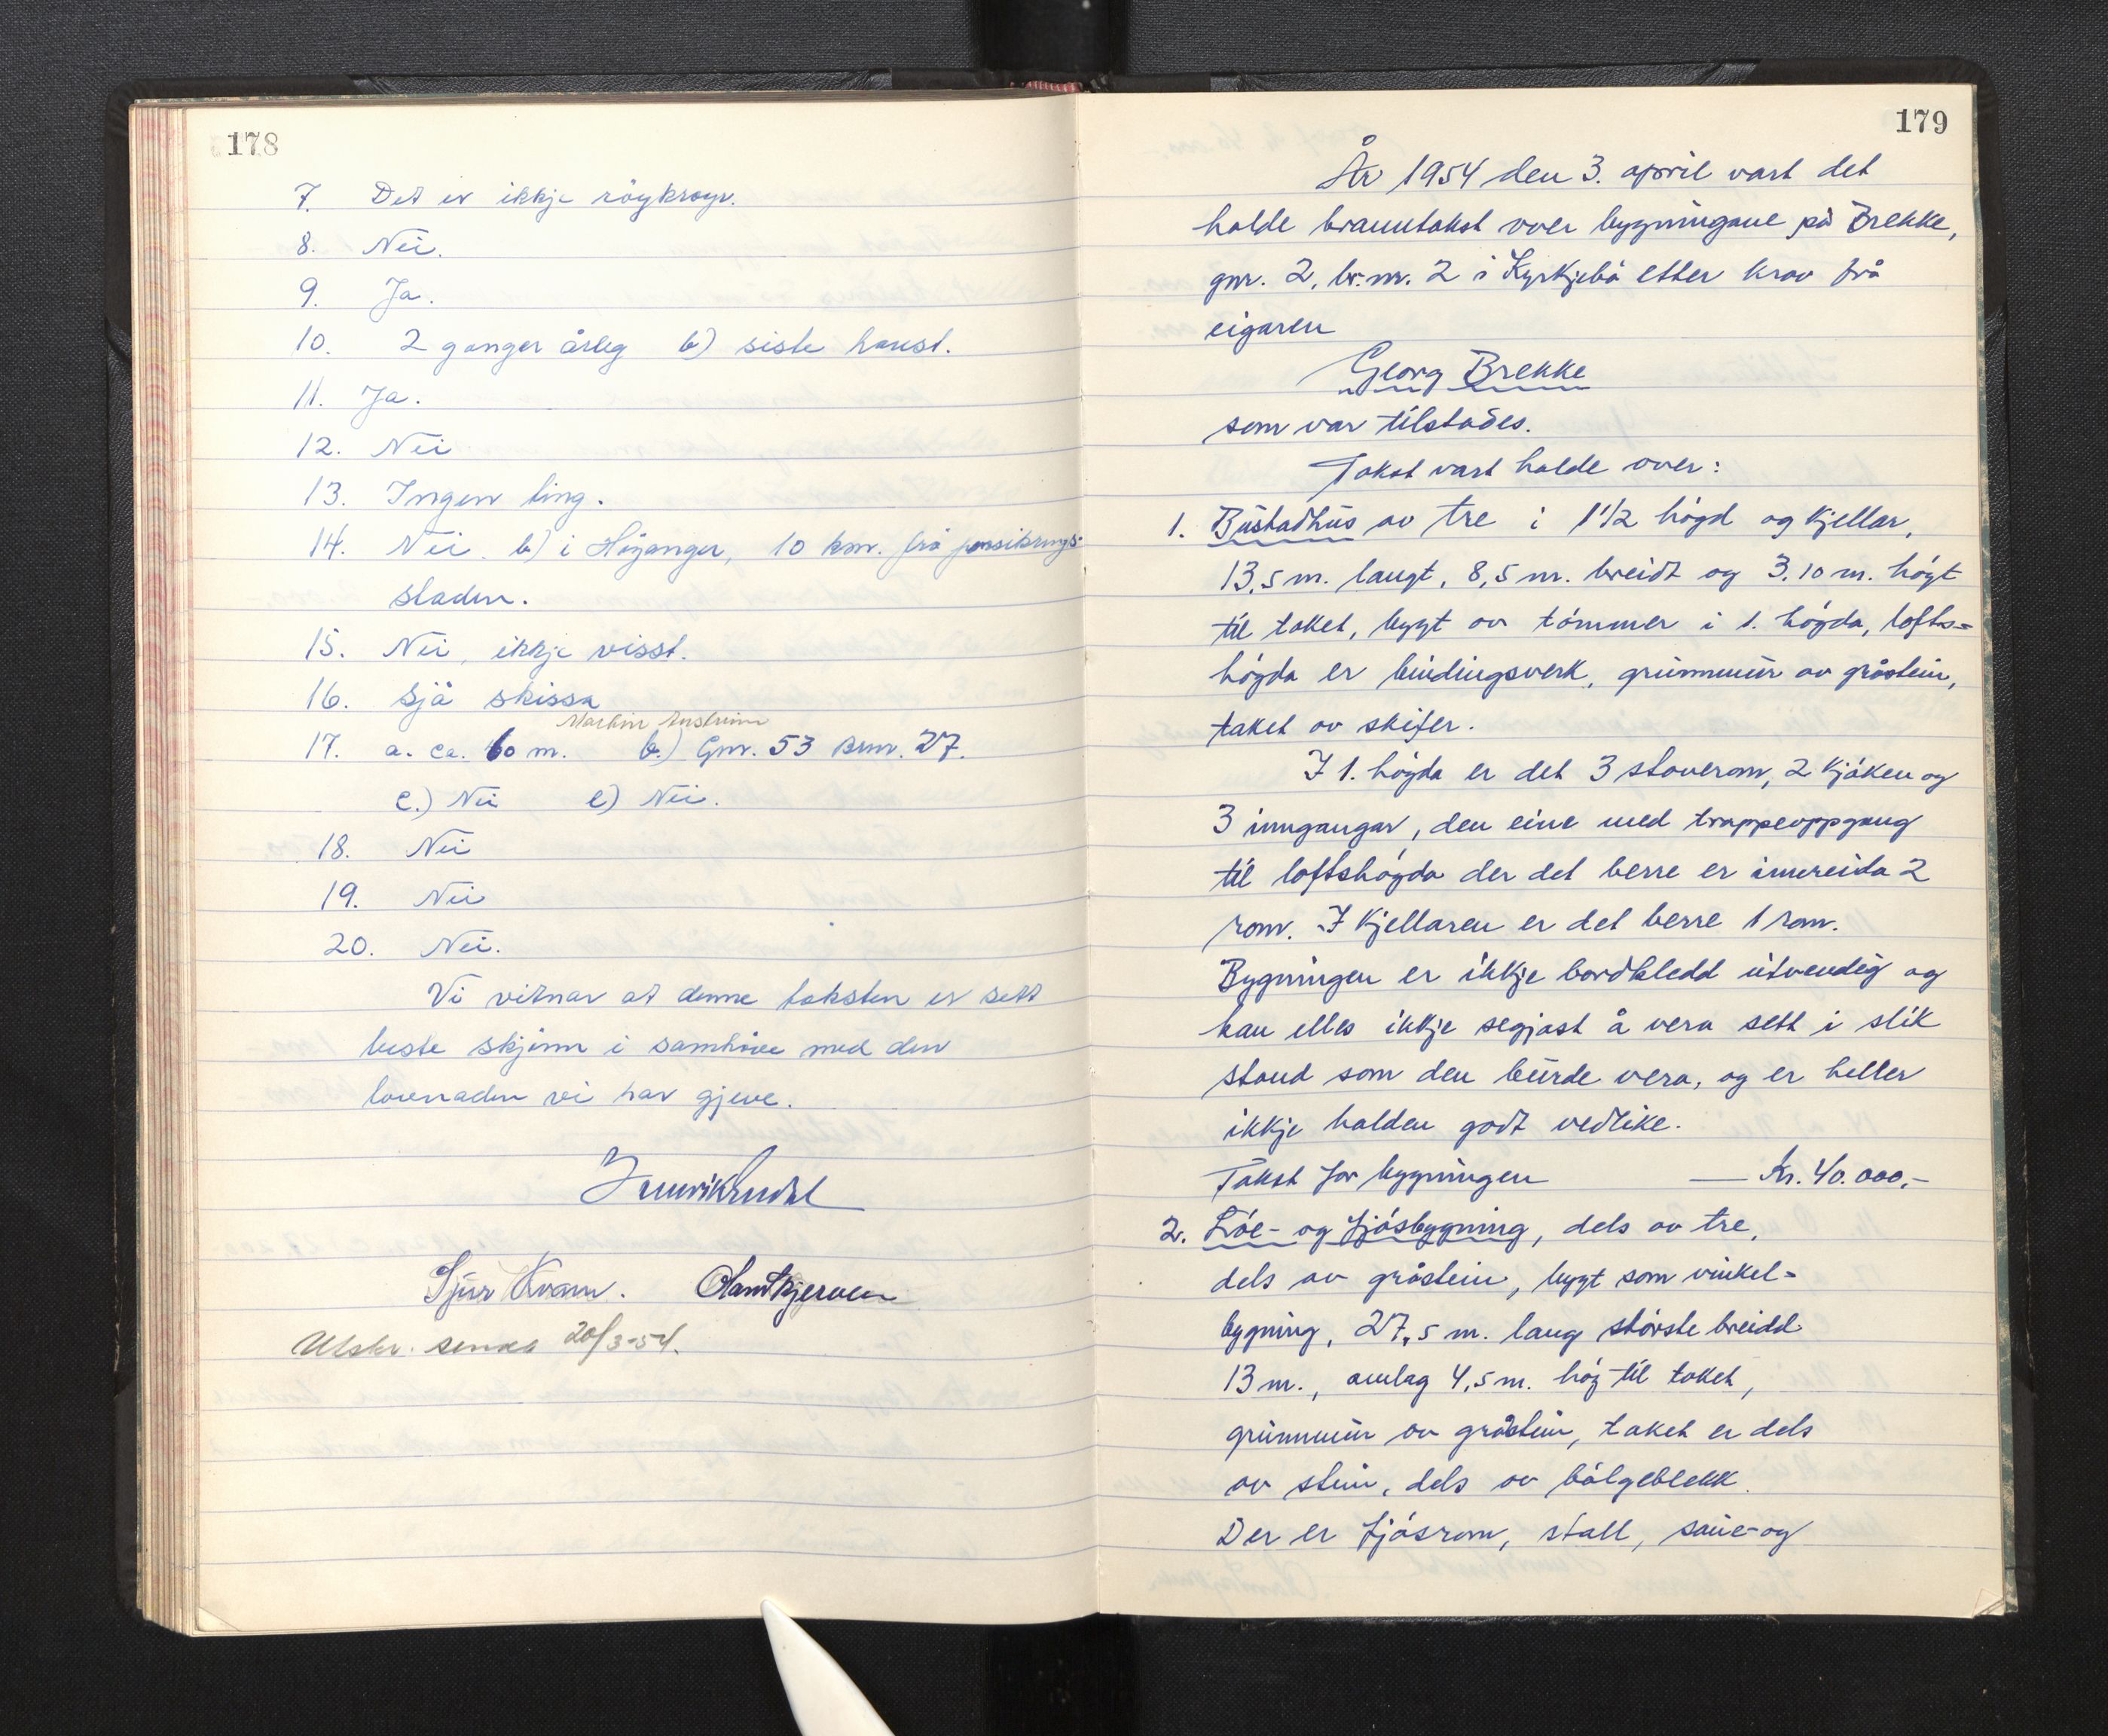 178
7. Det er ikkje röykrøyr.
8. Nei.
9. Ja.
10. 2 ganger årleg b) siste haust.
11. Ja.
12. Nei
13. Ingen ting.
14. Nei. b) i Höyanger, 10 km. frå forsikrings-
staden.
15. Nei, ikkje visst.
16. Sjå skissa
Martin
17. a. ca. 60 m. b.) Gnr. 53 Bnr. 27.
c.) Nei e) Nei.
18. Nei
19. Nei
20. Nei.
Vi vitnar at denne taksten er sett
beste skjönn i samhöve med den
lovnaden vi har gjeve.
Sjur Kvam.
Utskr. sendt 20/3-54.
179
År 1954 den 3. april vart det
halde branntakst over bygningane på Brekke,
gnr. 2, br.nr. 2 i Kyrkjebø etter krav frå
eigaren
Georg Brekke
som var tilstades.
Takst vart halde over:
1. Bustadhus av tre i 1 1/2 högd og kjellar,
13,5 m. langt, 8,5 m. breidt og 3,10 m. högt
til taket, bygt av tömmer i 1. högda, lofts=
högda er bindingsverk, grunnmur av gråstein,
taket av skifer.
I 1. högda er det 3 stoverom, 2 kjöken og
3 inngangar, den eine med trappeoppgang
til loftshögda der det berre er innreida 2
rom. I kjellaren er det berre 1 rom.
Bygningen er ikkje bordkledd utvendig og
kan elles ikkje segjast å vera sett i slik
stand som den burde vera, og er heller
ikkje halden godt vedlike.
Takst for bygningen — Kr. 40.000,-
2. Löe- og fjósbygning, dels av tre,
dels av gråstein, bygt som vinkel=
bygning, 27,5 m. lang största breidd
13 m., omlag 4,5 m. hög til taket,
grunnmur av gråstein, taket er dels
av stein, dels av bölgeblekk.
Der er fjósrom, stall, saue- og